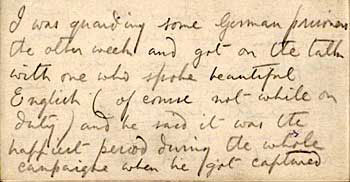 I was guarding some German prisoners
the other week and got on the talk
with one who spoke beautiful
English ( of course not while on
duty ) and he said it was the
happiest period during the whole
campaigne when he got captured